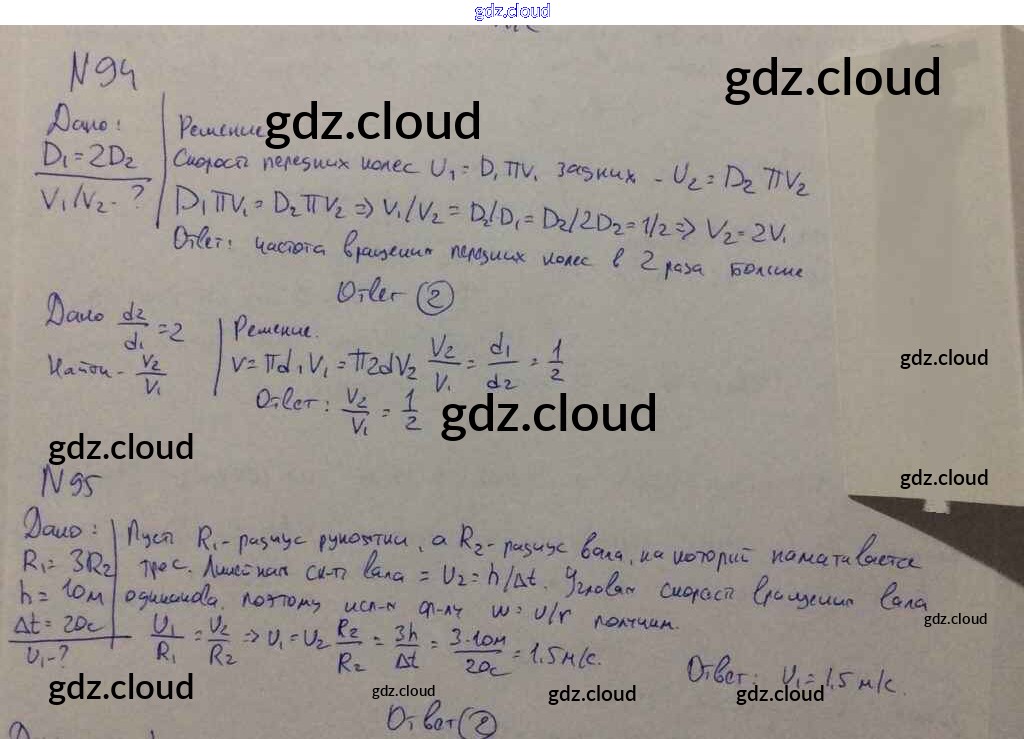 gdz.cloud
N94
gdz.cloud
Дано:
D₁=2D₂
V₁/V₂-?
Решение gdz.cloud
Скорость передних колес U₁=D₁πV₁ задних - U₂=D₂πV₂
D₁πV₁=D₂πV₂⇒V₁/V₂=D₂/D₁=D₂/2D₂=1/2⇒V₂=2V₁
Ответ: частота вращения передних колес в 2 раза больше
Ответ (2)
Дано d₂/d₁=2
Найти- V₂/V₁
Решение.
V=πd₁V₁=π2dV₂ V₂/V₁=d₁/d₂=1/2
gdz.cloud
Ответ: V₂/V₁=1/2 gdz.cloud
gdz.cloud
gdz.cloud
N95
Дано:
R₁=3R₂
h=10м
Δt=20с
U₁-?
Пусть R₁-радиус рукоятки, а R₂-радиус вала, на который наматывается
трос. Линейная ск-ть вала = U₂=h/Δt. Угловая скорость вращения вала
одинакова, поэтому исп-я ф-лу w=U/r получим.
gdz.cloud
U₁/R₁=U₂/R₂⇒U₁=U₂R₂/R₂=3h/Δt=3·10м/20с=1.5м/с.
Ответ: U₁=1,5м/с.
gdz.cloud
gdz.cloud
gdz.cloud
gdz.cloud
Ответ (2)
gdz.cloud